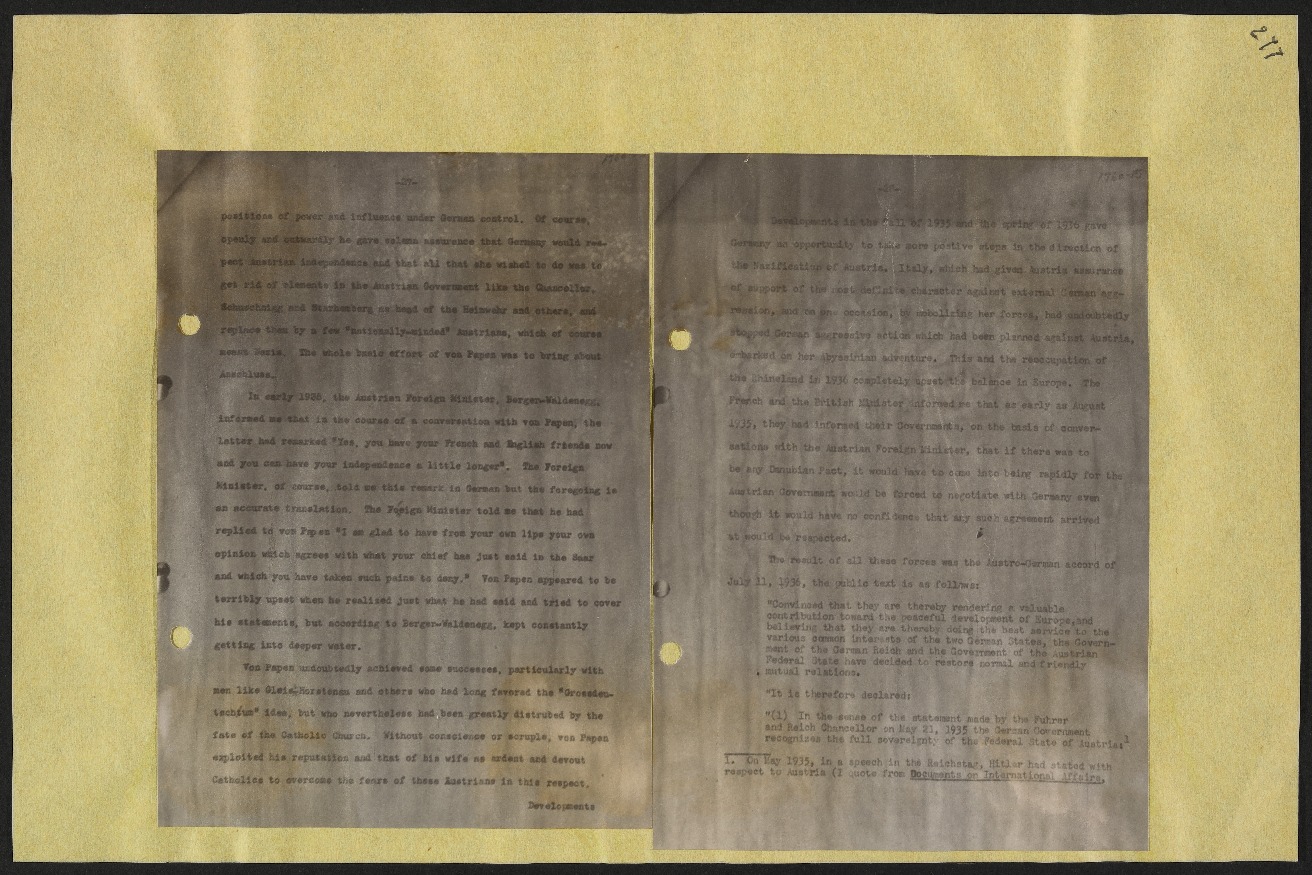 277
-27-
positions of power and influence under German control. Of course,
openly and outwardly he gave solemn assurance that Germany would res-
pect Austrian independence and that all that she wished to do was to
get rid of elements in the Austrian Government like the Chancellor,
Schuschnigg and Starhemberg as head of the Heimwehr and others, and
replace them by a few "nationally-minded" Austrians, which of course
meant Nazis. The whole basic effort of von Papen was to bring about
Anschluss.
In early 1936, the Austrian Foreign Minister, Berger-Waldenegg,
informed me that in the course of a conversation with von Papen, the
latter had remarked "Yes, you have your French and English friends now
and you can have your independence a little longer". The Foreign
Minister, of course, told me this remark in German but the foregoing is
an accurate translation. The Foeign Minister told me that he had
replied to von Papen "I am glad to have from your own lips your own
opinion which agrees with what your chief has just said in the Saar
and which you have taken such pains to deny." Von Papen appeared to be
terribly upset when he realized just what he had said and tried to cover
his statements, but according to Berger-Waldenegg, kept constantly
getting into deeper water.
Von Papen undoubtedly achieved some successes, particularly with
men like Gleis-Horstenau and others who had long favored the "Grossdeu-
tschtum" idea, but who nevertheless had been greatly distrubed by the
fate of the Catholic Church. Without conscience or scruple, von Papen
exploited his reputation and that of his wife as ardent and devout
Catholics to overcome the fears of these Austrians in this respect.
Developments
1760-PS
-28-
Developments in the fall of 1935 and the spring of 1936 gave
Germany an opportunity to take more postive steps in the direction of
the Nazification of Austria. Italy, which had given Austria assurance
of support of the most definite character against external German agg-
ression, and on one occasion, by mobolizing her forces, had undoubtedly
stopped German aggressive action which had been planned against Austria,
embarked on her Abyssinian adventure. This and the reoccupation of
the Rhineland in 1936 completely upset the balance in Europe. The
French and the British Minister informed me that as early as August
1935, they had informed their Governments, on the basis of conver-
sations with the Austrian Foreign Minister, that if there was to
be any Danubian Pact, it would have to come into being rapidly for the
Austrian Government would be forced to negotiate with Germany even
though it would have no confidence that any such agreement arrived
at would be respected.
The result of all these forces was the Austro-German accord of
July 11, 1936, the public text is as follows:
"Convinced that they are thereby rendering a valuable
contribution toward the peaceful development of Europe,and
believing that they are thereby doing the best service to the
various common interests of the two German States, the Govern-
ment of the German Reich and the Government of the Austrian
Federal State have decided to restore normal and friendly
mutual relations.
"It is therefore declared:
"(1) In the sense of the statement made by the Fuhrer
and Reich Chancellor on May 21, 1935 the German Government
recognizes the full sovereignty of the Federal State of Austria;1
1. On May 1935, in a speech in the Reichstag, Hitler had stated with
respect to Austria (I quote from Documents on International Affairs,